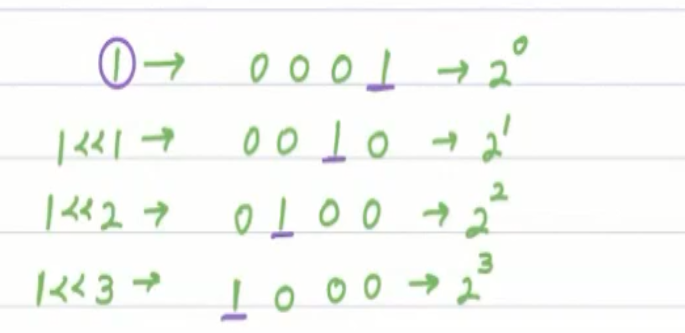 1 → 0 0 0 1 → 2⁰
1<<1 → 0 0 1 0 → 2¹
1<<2 → 0 1 0 0 → 2²
1<<3 → 1 0 0 0 → 2³